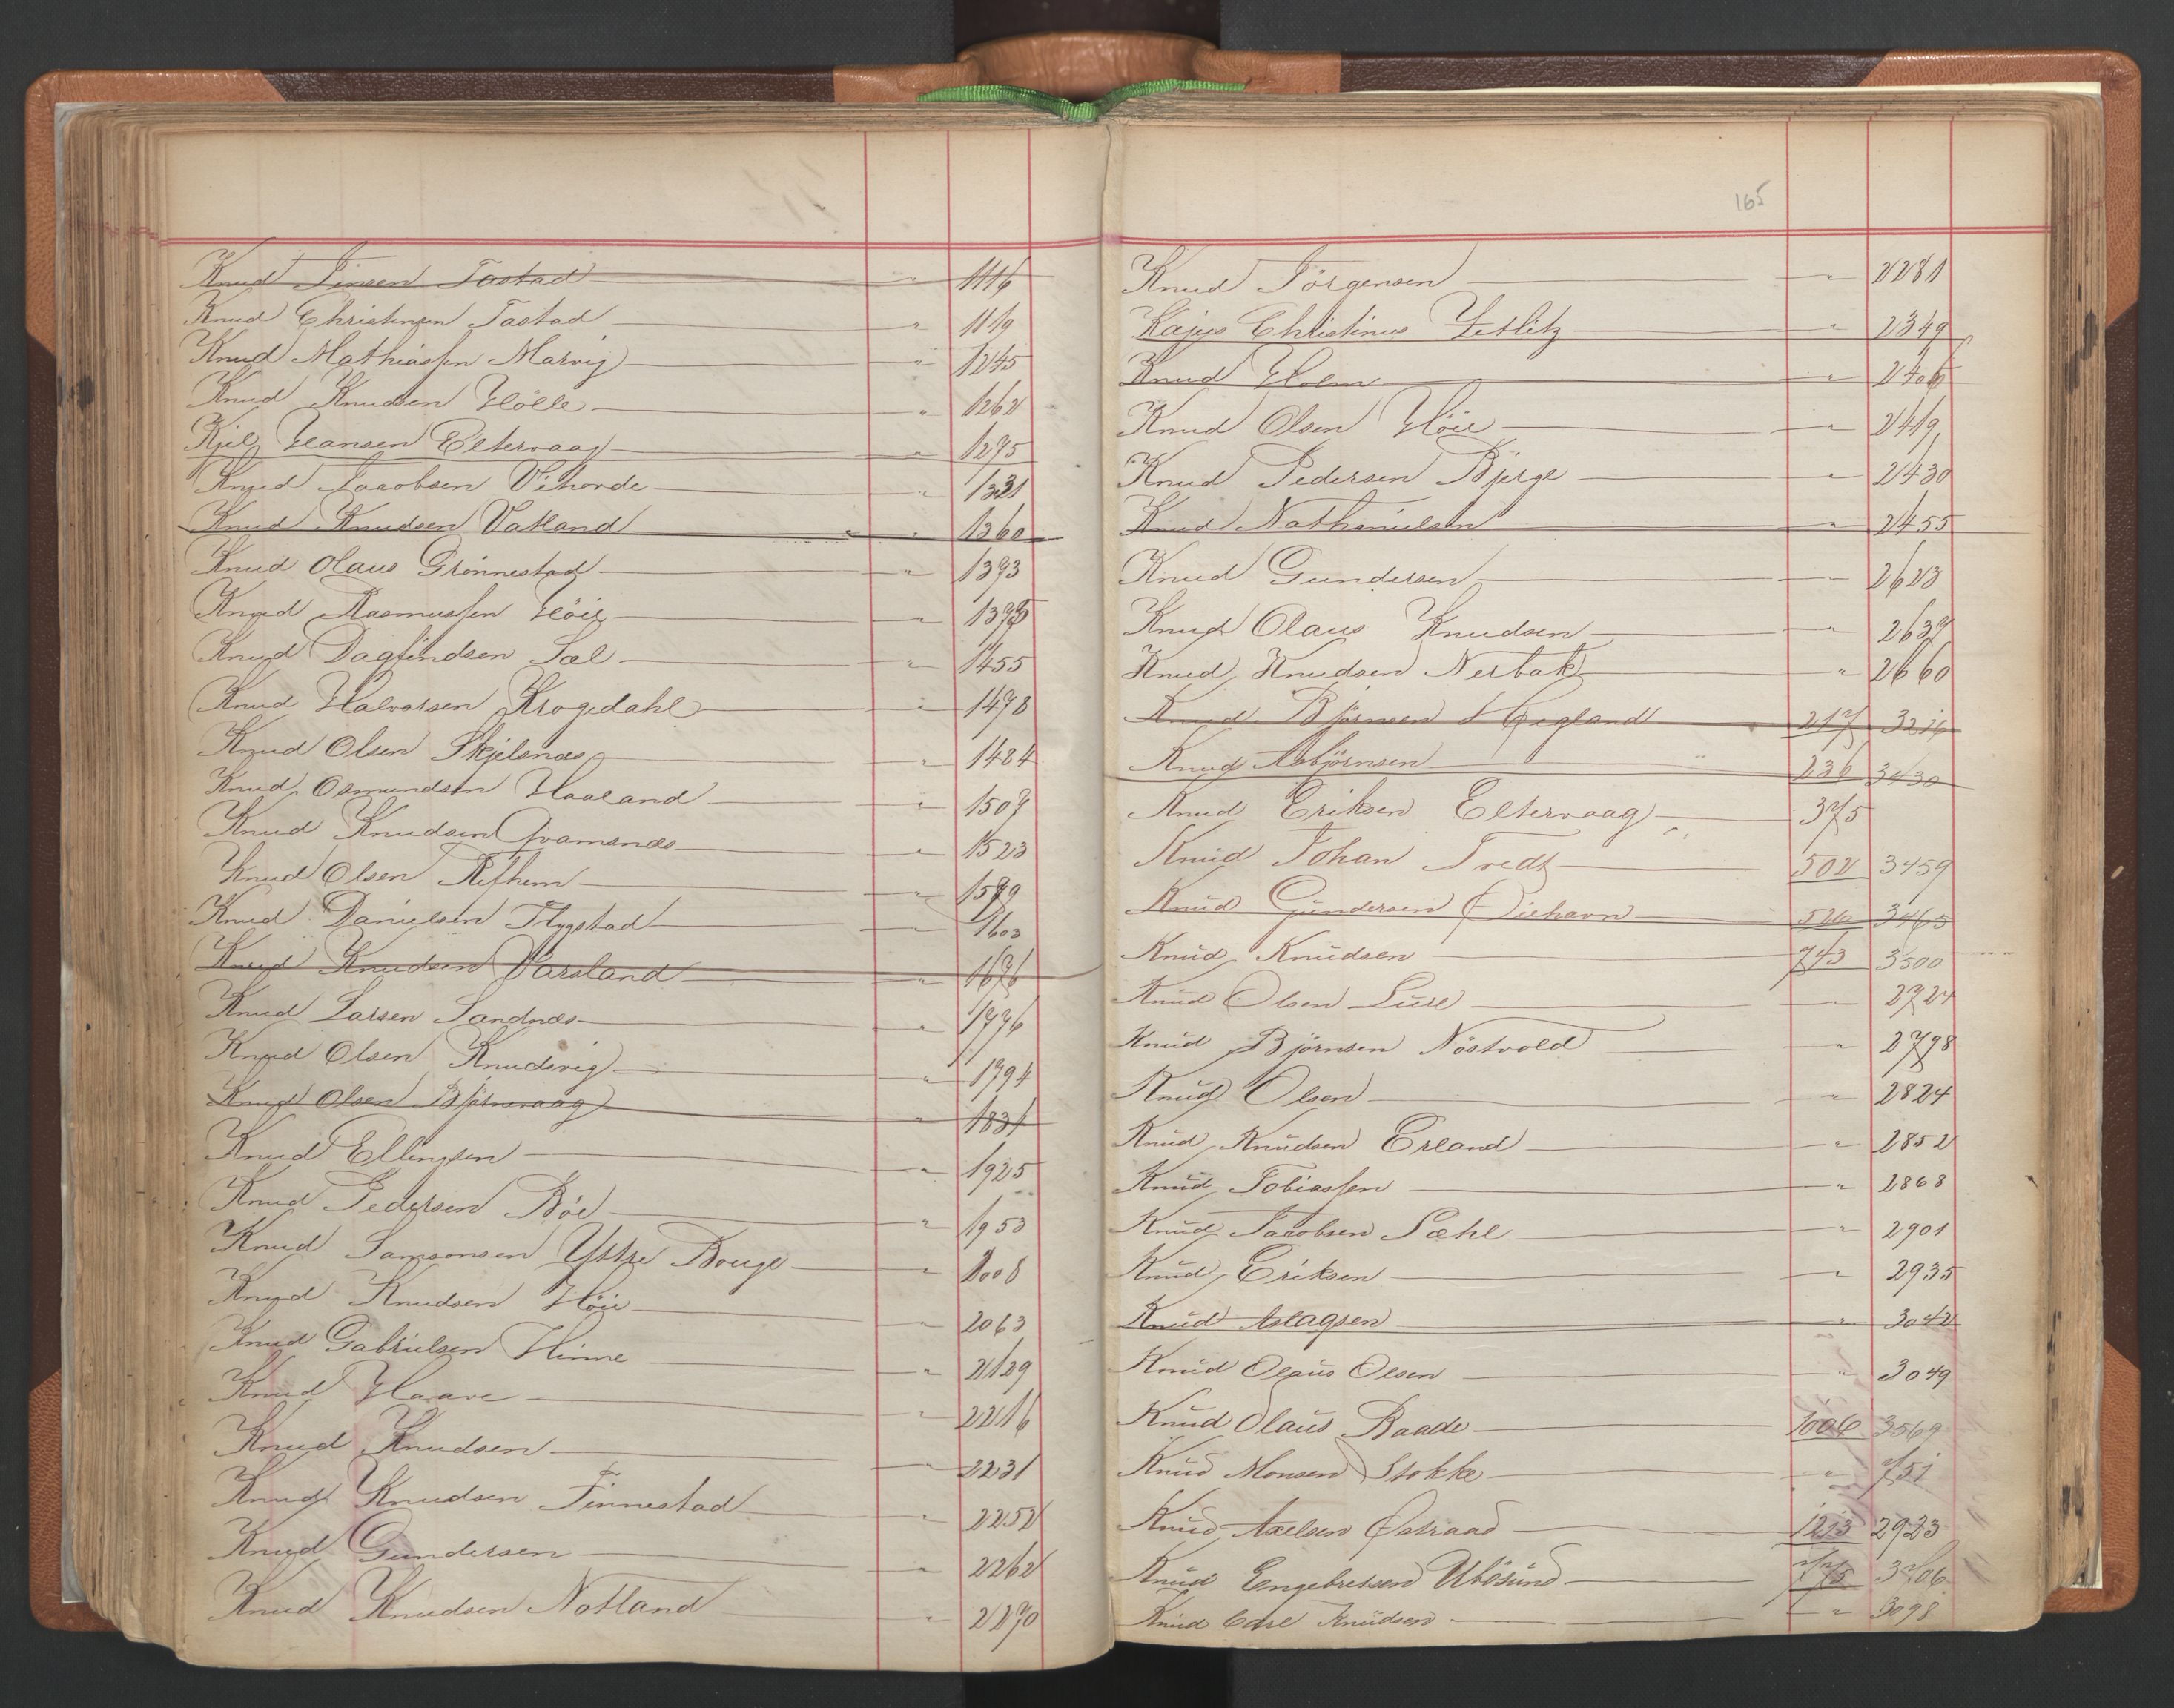 Knud Jensen Tastad " 1116
Knud Christensen Tastad " 1119
Knud Mathiassen Marvig " 1245
Knud Knudsen Hölle " 1262
Kjel Hansen Eltervaag " 1275
Knud Jacobsen Vihovde " 1331
Knud Knudsen Vatland " 1360
Knud Olaus Grönnestad " 1373
Knud Rasmussen Höie "
Knud Dagfindsen Sæl " 1455
Knud Halvorsen Krogedahl " 1478
Knud Olsen Skjelsnæs " 1484
Knud Osmundsen Haaland " 1507
Knud Knudsen Qvamsnæs " 1523
Knud Olsen "
Knud Danielsen Flygstad " 1603
Knud Knudsen Varsland " 1676
Knud Larsen Sandnæs " 1776
Knud Olsen Knudsvig " 1794
Knud Olsen Björnevaag " 1831
Knud Ellingsen " 1925
Knud Pedersen Böe " 1953
Knud Samsonsen Yttre Bouge " 2008
Knud Knudsen Höie " 2063
Knud Gabrielsen Hinne " 2129
Knud Haave " 2216
Knud Knudsen " 2231
Knud Knudsen Finnestad " 2252
Knud Gundersen " 2262
Knud Knudsen Notland " 2270
165
Knud Jörgensen " 2281
Kajus Christinus Zetlitz " 2349
Knud Holm " 2406
Knud Olsen Höie " 2419
Knud Pedersen Bjerge " 2430
Knud Nathanielsen " 2455
Knud Gundersen " 2623
Knud Olaus Knudsen " 2637
Knud Knudsen Nerbak " 2660
Knud Björnsen Hegland 217 3216
Knud Asbjörnsen 236 3430
Knud Eriksen Eltervaag 375
Knud Johan Tvedt 502 3459
Knud Gundersen Qviehavn 526 3465
Knud Knudsen 743 3500
Knud Olsen Lure " 2724
Knud Björnsen Nöstvold " 2798
Knud Olsen " 2824
Knud Knudsen Erland " 2852
Knud Tobiassen " 2868
Knud Jacobsen Sæhl " 2901
Knud Eriksen " 2935
Knud Aslagsen " 3042
Knud Olaus Olsen " 3049
Knud Olaus Baade 1006 3569
Knud Monsen Stokke " 751
Knud Axelsen Östraad 1213 2923
Knud Engebretsen Ubösund 775 3706
Knud Carl Knudsen " 3098